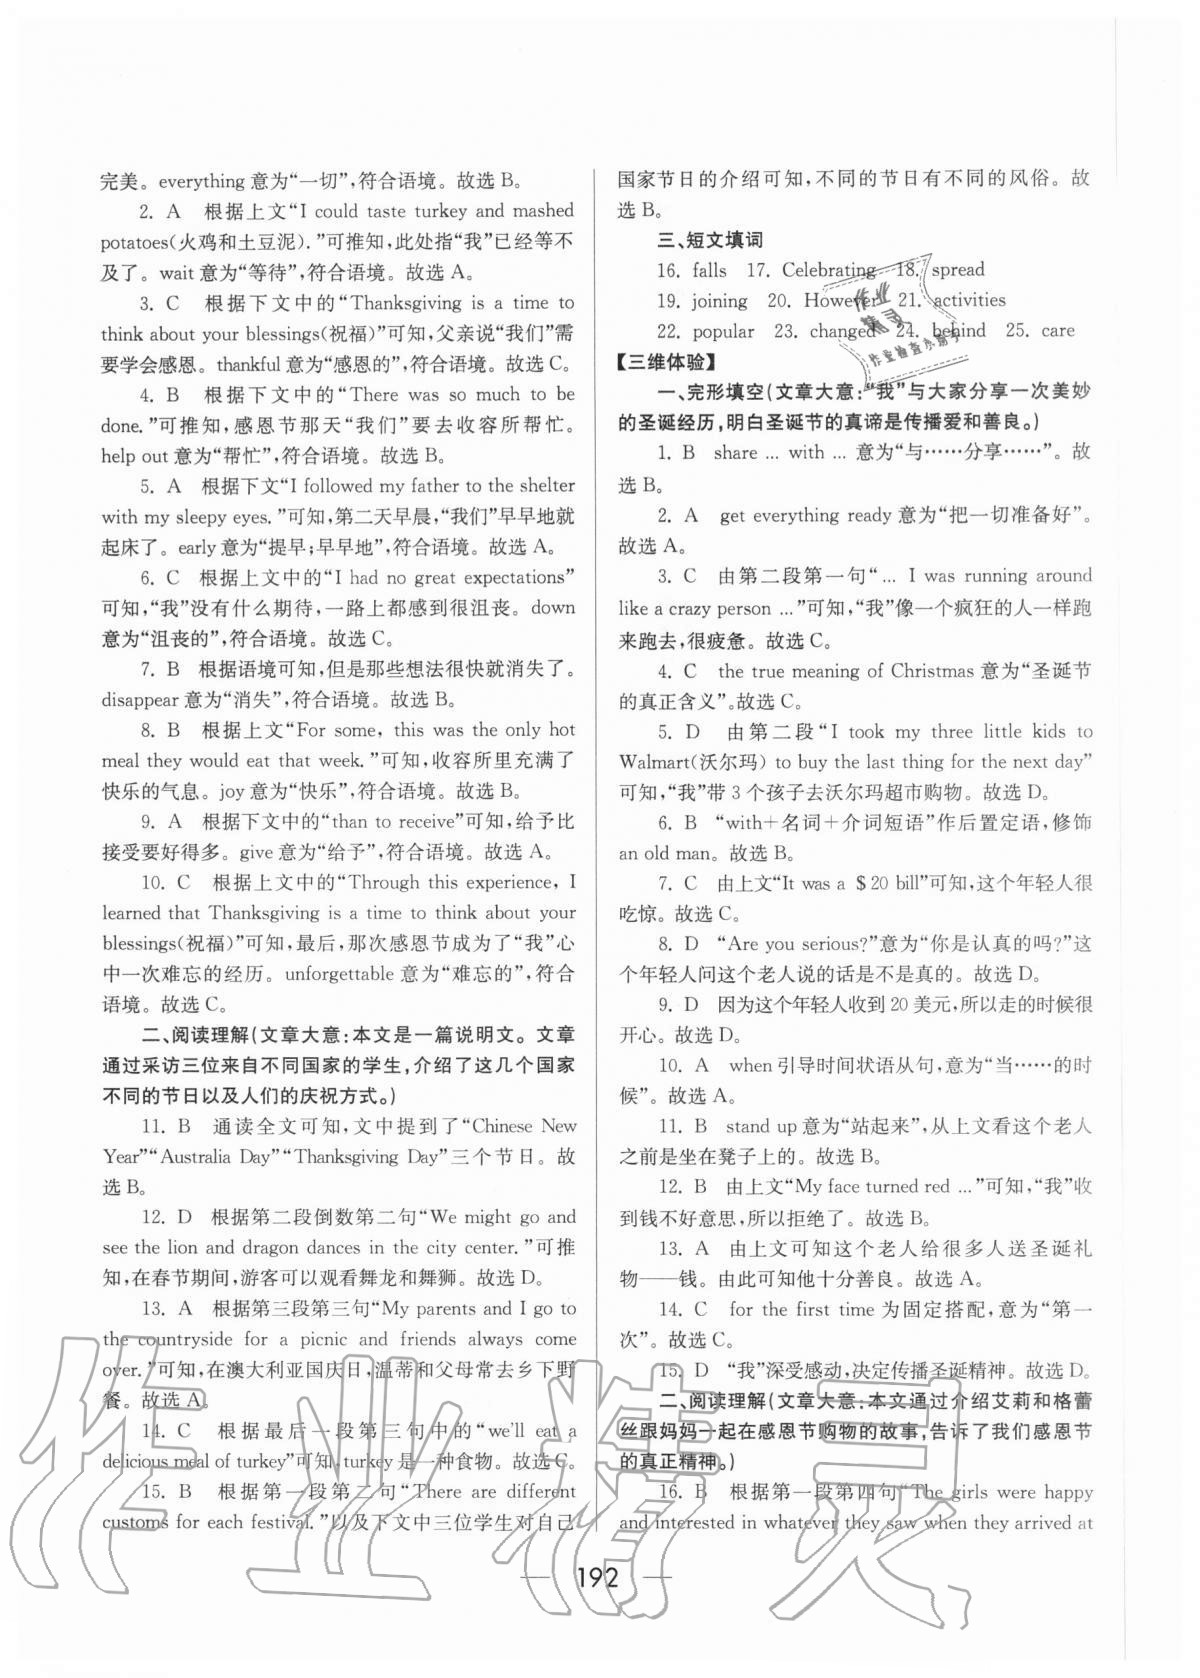 完美。everything 意为“一切”,符合语境。故选 B。
2. A 根据上文“I could taste turkey and mashed
potatoes(火鸡和土豆泥). ”可推知,此处指“我”已经等不
及了。wait 意为“等待”,符合语境。故选 A。
3. C 根据下文中的“Thanksgiving is a time to
think about your blessings(祝福)”可知,父亲说“我们”需
要学会感恩。thankful 意为“感恩的”,符合语境。故选 C。
4. B 根据下文中的“There was so much to be
done. ”可推知,感恩节那天“我们”要去收容所帮忙。
help out 意为“帮忙”,符合语境。故选 B。
5. A 根据下文“I followed my father to the shelter
with my sleepy eyes. ”可知,第二天早晨,“我们”早早地就
起床了。early 意为“提早;早早地”,符合语境。故选 A。
6. C 根据上文中的“I had no great expectations”
可知,“我”没有什么期待,一路上都感到很沮丧。down
意为“沮丧的”,符合语境。故选 C。
7. B 根据语境可知,但是那些想法很快就消失了。
disappear 意为“消失”,符合语境。故选 B。
8. B 根据上文“For some, this was the only hot
meal they would eat that week. ”可知,收容所里充满了
快乐的气息。joy 意为“快乐”,符合语境。故选 B。
9. A 根据下文中的“than to receive”可知,给予比
接受要好得多。give 意为“给予”,符合语境。故选 A。
10. C 根据上文中的“Through this experience, I
learned that Thanksgiving is a time to think about your
blessings(祝福)”可知,最后,那次感恩节成为了“我”心
中一次难忘的经历。unforgettable 意为“难忘的”,符合
语境。故选 C。
二、阅读理解(文章大意:本文是一篇说明文。文章
通过采访三位来自不同国家的学生,介绍了这几个国家
不同的节日以及人们的庆祝方式。)
11. B 通读全文可知,文中提到了“Chinese New
Year”“Australia Day”“Thanksgiving Day”三个节日。故
选 B。
12. D 根据第二段倒数第二句“We might go and
see the lion and dragon dances in the city center. ”可推
知,在春节期间,游客可以观看舞龙和舞狮。故选 D。
13. A 根据第三段第三句“My parents and I go to
the countryside for a picnic and friends always come
over. ”可知,在澳大利亚国庆日,温蒂和父母常去乡下野
餐。故选 A。
14. C 根据最后一段第三句中的“we'll eat a
delicious meal of turkey”可知,turkey 是一种食物。故选 C。
15. B 根据第一段第二句“There are different
customs for each festival. ”以及下文中三位学生对自己
国家节日的介绍可知,不同的节日有不同的风俗。故
选 B。
三、短文填词
16. falls 17. Celebrating 18. spread
19. joining 20. However 21. activities
22. popular 23. changed 24. behind 25. care
【三维体验】
一、完形填空(文章大意:“我”与大家分享一次美妙
的圣诞经历,明白圣诞节的真谛是传播爱和善良。)
1. B share … with … 意为“与……分享……”。故
选 B。
2. A get everything ready 意为“把一切准备好”。
故选 A。
3. C 由第二段第一句“… I was running around
like a crazy person …”可知,“我”像一个疯狂的人一样跑
来跑去,很疲惫。故选 C。
4. C the true meaning of Christmas 意为“圣诞节
的真正含义”。故选 C。
5. D 由第二段“I took my three little kids to
Walmart(沃尔玛) to buy the last thing for the next day”
可知,“我”带 3 个孩子去沃尔玛超市购物。故选 D。
6. B “with+名词+介词短语”作后置定语,修饰
an old man。故选 B。
7. C 由上文“It was a ＄20 bill”可知,这个年轻人很
吃惊。故选 C。
8. D “Are you serious?”意为“你是认真的吗?”这
个年轻人问这个老人说的话是不是真的。故选 D。
9. D 因为这个年轻人收到 20 美元,所以走的时候很
开心。故选 D。
10. A when 引导时间状语从句,意为“当……的时
候”。故选 A。
11. B stand up 意为“站起来”,从上文看这个老人
之前是坐在凳子上的。故选 B。
12. B 由上文“My face turned red …”可知,“我”收
到钱不好意思,所以拒绝了。故选 B。
13. A 由上文可知这个老人给很多人送圣诞礼
物——钱。由此可知他十分善良。故选 A。
14. C for the first time 为固定搭配,意为“第一
次”。故选 C。
15. D “我”深受感动,决定传播圣诞精神。故选 D。
二、阅读理解(文章大意:本文通过介绍艾莉和格蕾
丝跟妈妈一起在感恩节购物的故事,告诉了我们感恩节
的真正精神。)
16. B 根据第一段第四句“The girls were happy
and interested in whatever they saw when they arrived at
192
作业精灵
作业
精灵
作业检查小助手